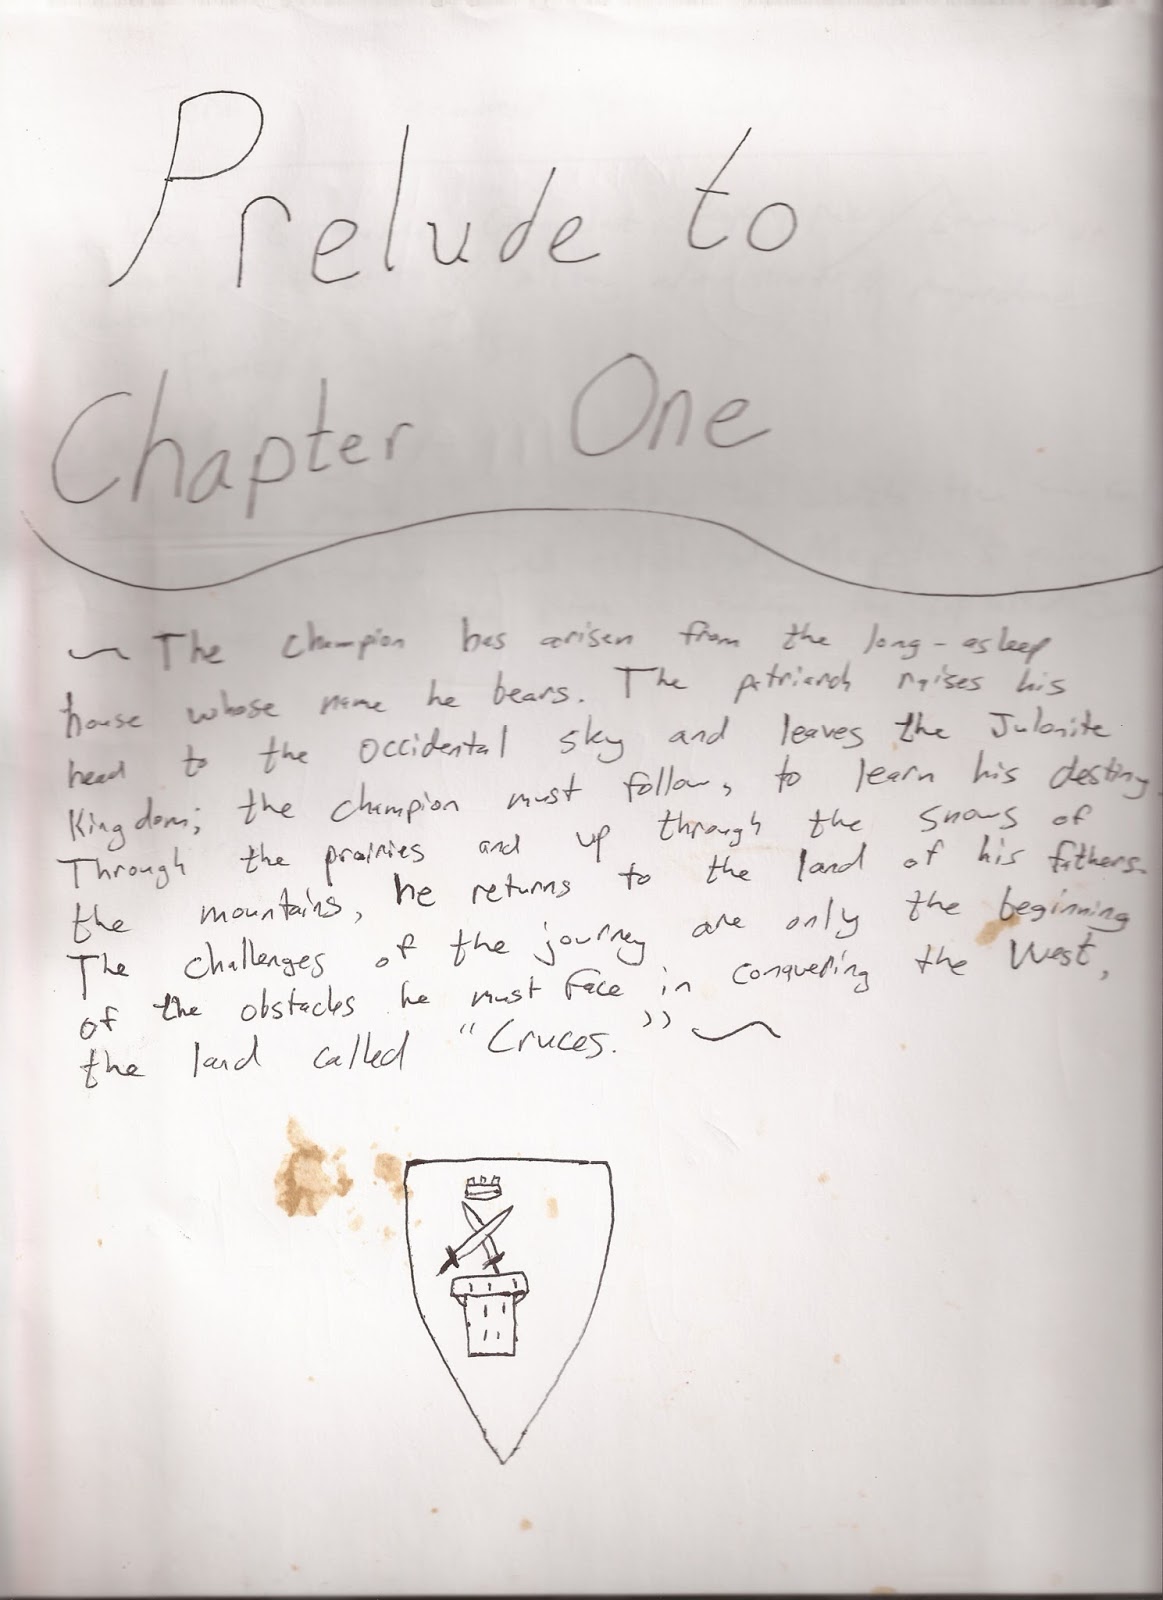 Prelude to
Chapter One
~ The champion has arisen from the long-asleep
house whose name he bears. The patriarch raises his
head to the occidental sky and leaves the Julonite
Kingdom; the champion must follow, to learn his destiny.
Through the prairies and up through the snows of
the mountains, he returns to the land of his fathers.
The challenges of the journey are only the beginning
of the obstacles he must face in conquering the West,
the land called "Cruces." ~